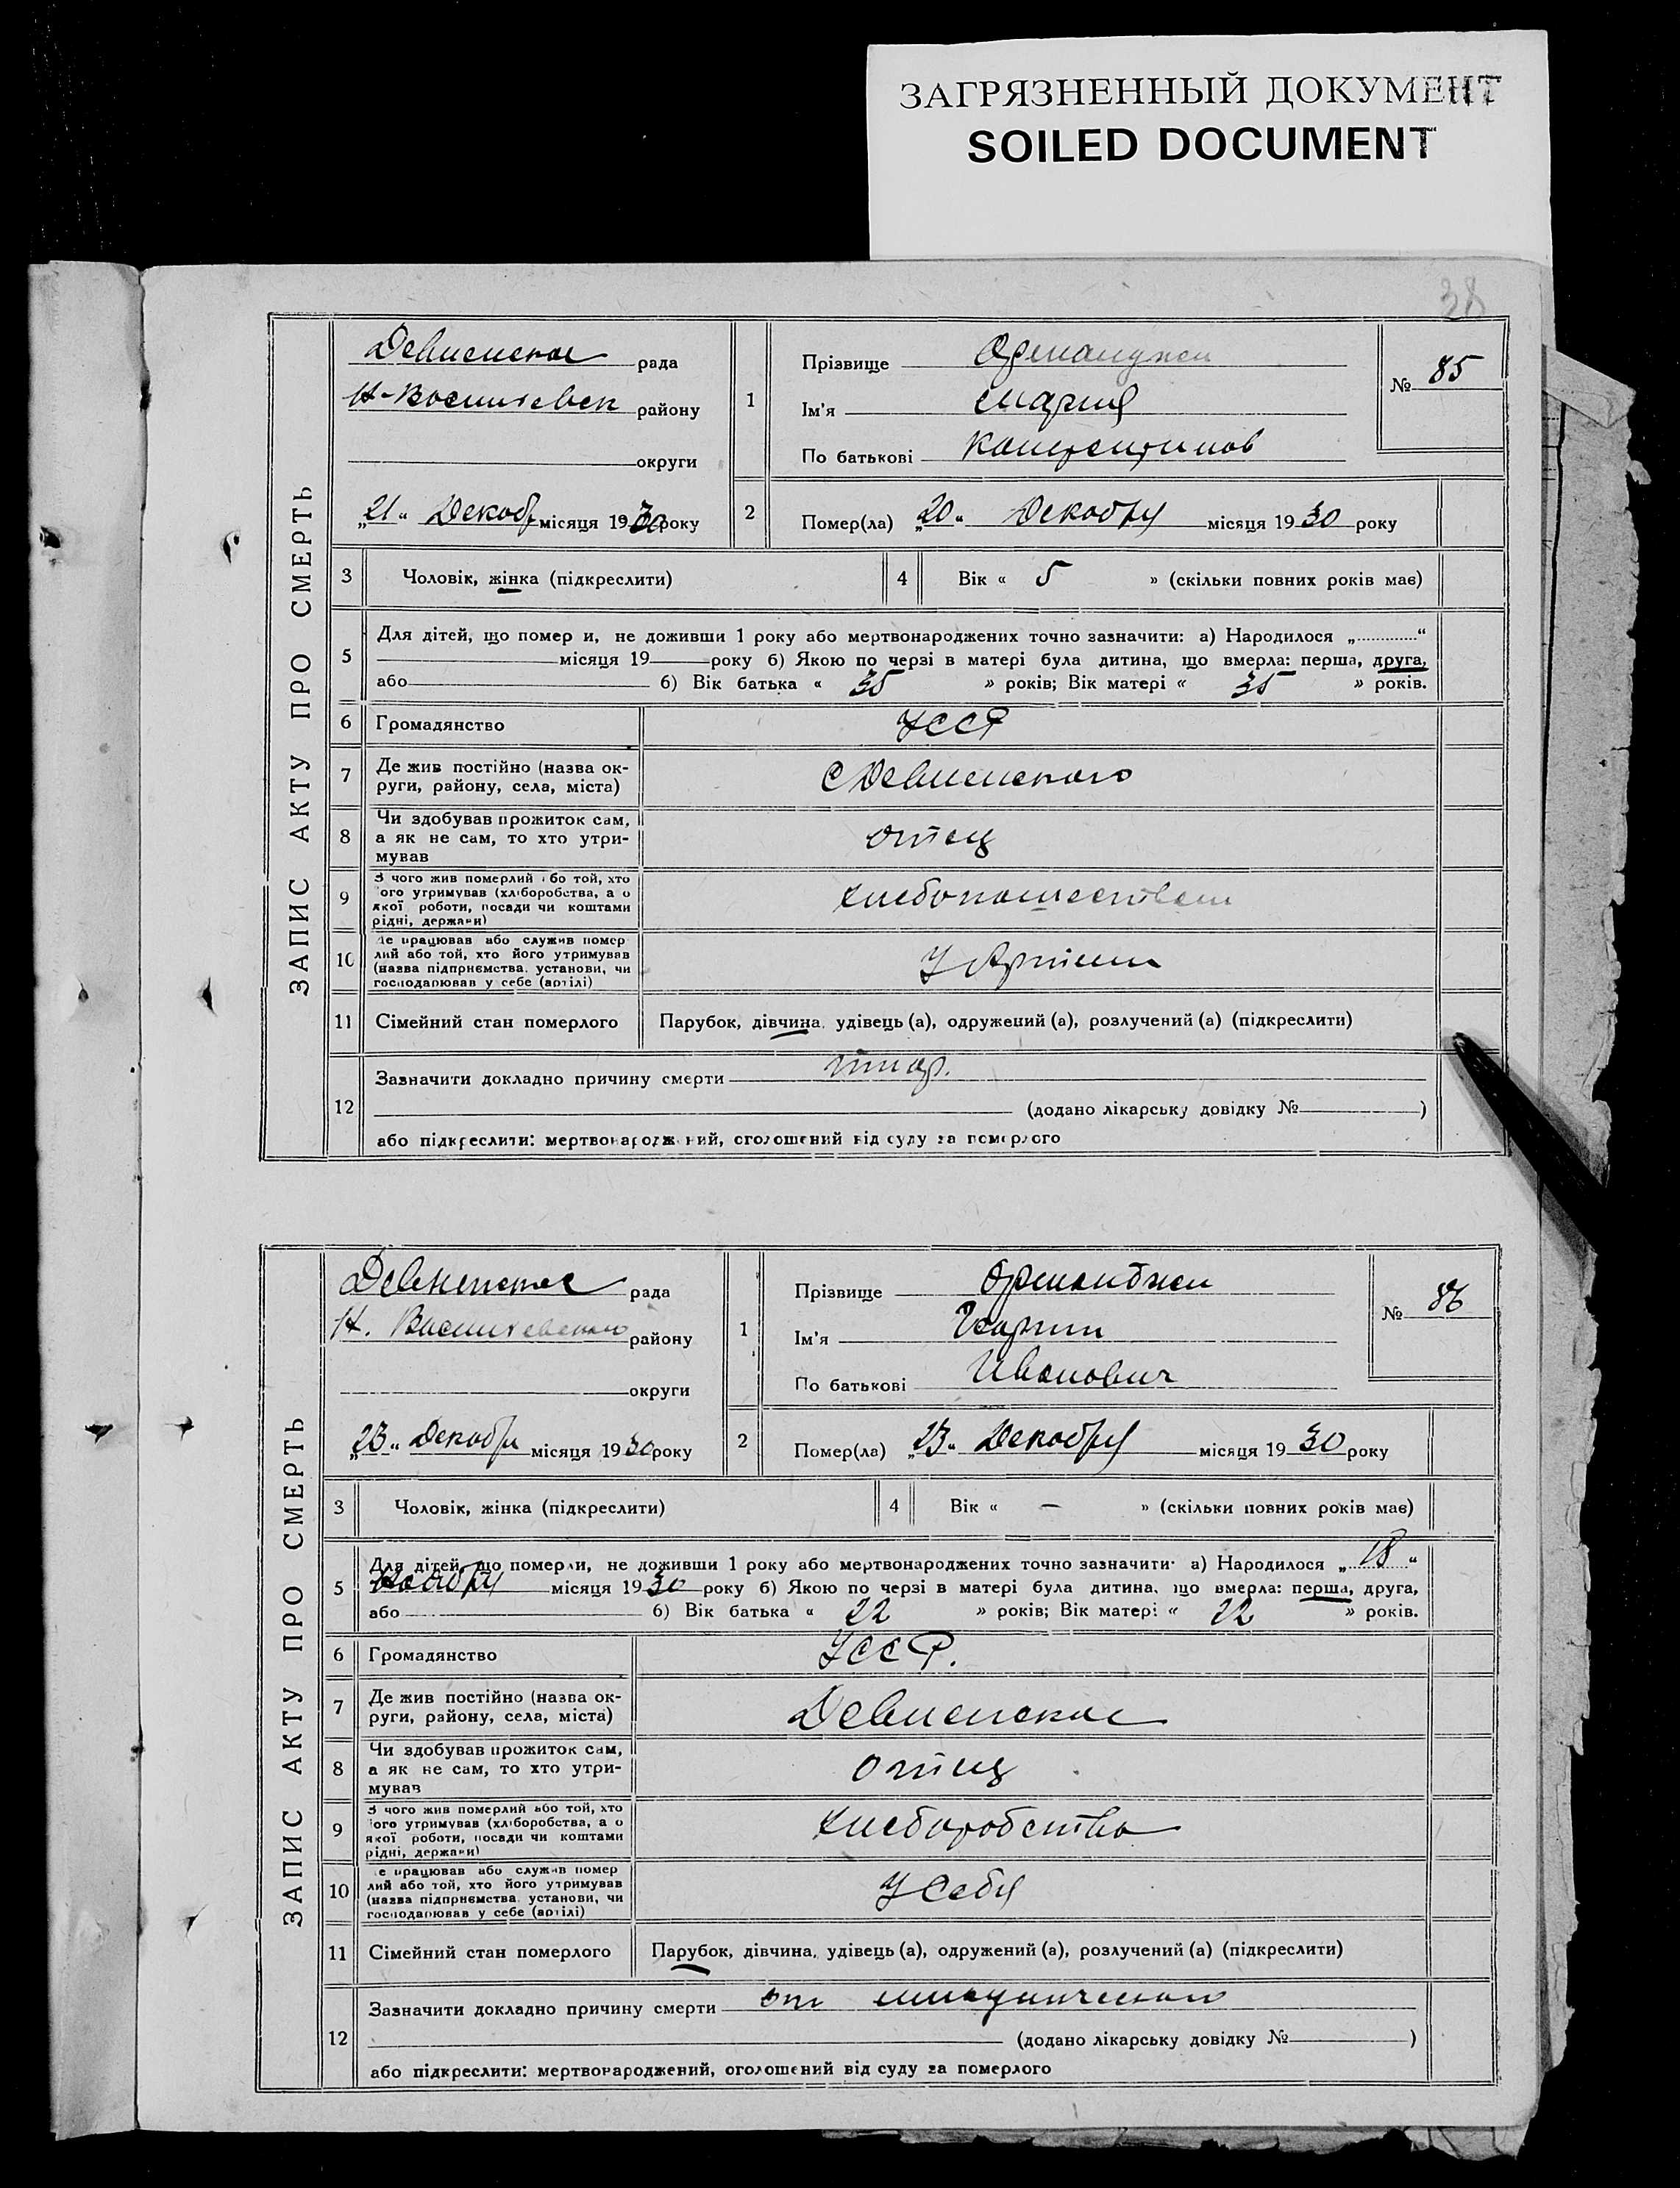 ЗАГРЯЗНЕННЫЙ ДОКУМЕНТ
SOILED DOCUMENT
38
ЗАПИС АКТУ ПРО СМЕРТЬ
Девненское рада
Н-Василевск району
округи
„21“ Декабр місяця 1930 року
1
Прізвище Орманджи
Ім'я Мария
По батькові Константинов
№ 85
2
Помер(ла) „20“ Декабря місяця 1930 року
3 Чоловік, жінка (підкреслити)
4 Вік « 5 » (скільки повних років має)
5 Для дітей, що помер и, не доживши 1 року або мертвонароджених точно зазначити: а) Народилося „............“
місяця 19 року б) Якою по черзі в матері була дитина, що вмерла: перша, друга,
або б) Вік батька « 35 » років; Вік матері « 35 » років.
6 Громадянство УССР
7 Де жив постійно (назва ок-
руги, району, села, міста)
С Девненского
8 Чи здобував прожиток сам,
а як не сам, то хто утри-
мував
отец
9 З чого жив померлий або той, хто
ого утримував (хліборобства, а о
якої роботи, посади чи коштами
рідні, держави)
10 е працював або служив помер
лий або той, хто його утримував
(назва підприємства, установи, чи
господарював у себе (артілі)
У Артели
11 Сімейний стан померлого Парубок, дівчина, удівець (а), одружений (а), розлучений (а) (підкреслити)
12 Зазначити докладно причину смерти
(додано лікарську довідку № )
або підкреслити: мертвонароджений, оголошений від суду за померлого
ЗАПИС АКТУ ПРО СМЕРТЬ
Девненское рада
Н. Василевского району
округи
„23“ Декабря місяця 1930 року
1
Прізвище Орманджи
Ім'я Георгий
По батькові Иванович
№ 86
2
Помер(ла) „23“ Декабря місяця 1930 року
3 Чоловік, жінка (підкреслити)
4 Вік « — » (скільки повних років має)
5 Для дітей, що померли, не доживши 1 року або мертвонароджених точно зазначити: а) Народилося „18“
Ноября місяця 1930 року б) Якою по черзі в матері була дитина, що вмерла: перша, друга,
або б) Вік батька « 22 » років; Вік матері « 22 » років.
6 Громадянство УССР.
7 Де жив постійно (назва ок-
руги, району, села, міста)
Девненское
8 Чи здобував прожиток сам,
а як не сам, то хто утри-
мував
отец
9 З чого жив померлий або той, хто
ого утримував (хліборобства, а о
якої роботи, посади чи коштами
рідні, держави)
хлеборобство
10 е працював або служив помер
лий або той, хто його утримував
(назва підприємства, установи, чи
господарював у себе (артілі)
У Себя
11 Сімейний стан померлого Парубок, дівчина, удівець (а), одружений (а), розлучений (а) (підкреслити)
12 Зазначити докладно причину смерти от
(додано лікарську довідку № )
або підкреслити: мертвонароджений, оголошений від суду за померлого